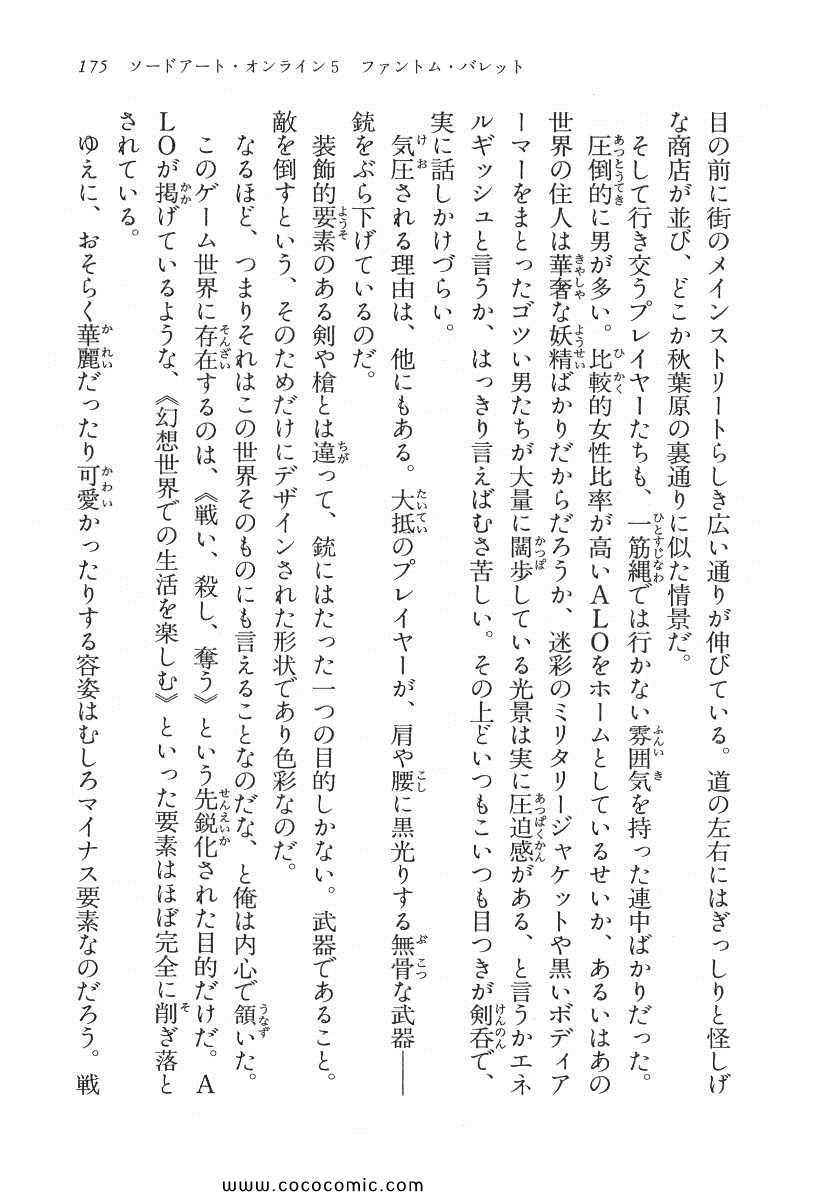 175　ソードアート・オンライン5　ファントム・バレット
目の前に街のメインストリートらしき広い通りが伸びている。道の左右にはぎっしりと怪しげ
な商店が並び、どこか秋葉原の裏通りに似た情景だ。
　そして行き交うプレイヤーたちも、一筋縄では行かない雰囲気を持った連中ばかりだった。
　圧倒的に男が多い。比較的女性比率が高いＡＬＯをホームとしているせいか、あるいはあの
世界の住人は華奢な妖精ばかりだからだろうか、迷彩のミリタリージャケットや黒いボディア
ーマーをまとったゴツい男たちが大量に闊歩している光景は実に圧迫感がある、と言うかエネ
ルギッシュと言うか、はっきり言えばむさ苦しい。その上どいつもこいつも目つきが剣呑で、
実に話しかけづらい。
　気圧される理由は、他にもある。大抵のプレイヤーが、肩や腰に黒光りする無骨な武器――
銃をぶら下げているのだ。
　装飾的要素のある剣や槍とは違って、銃にはたった一つの目的しかない。武器であること。
敵を倒すという、そのためだけにデザインされた形状であり色彩なのだ。
　なるほど、つまりそれはこの世界そのものにも言えることなのだな、と俺は内心で頷いた。
　このゲーム世界に存在するのは、《戦い、殺し、奪う》という先鋭化された目的だけだ。Ａ
ＬＯが掲げているような、《幻想世界での生活を楽しむ》といった要素はほぼ完全に削ぎ落と
されている。
　ゆえに、おそらく華麗だったり可愛かったりする容姿はむしろマイナス要素なのだろう。戦
www.cococomic.com